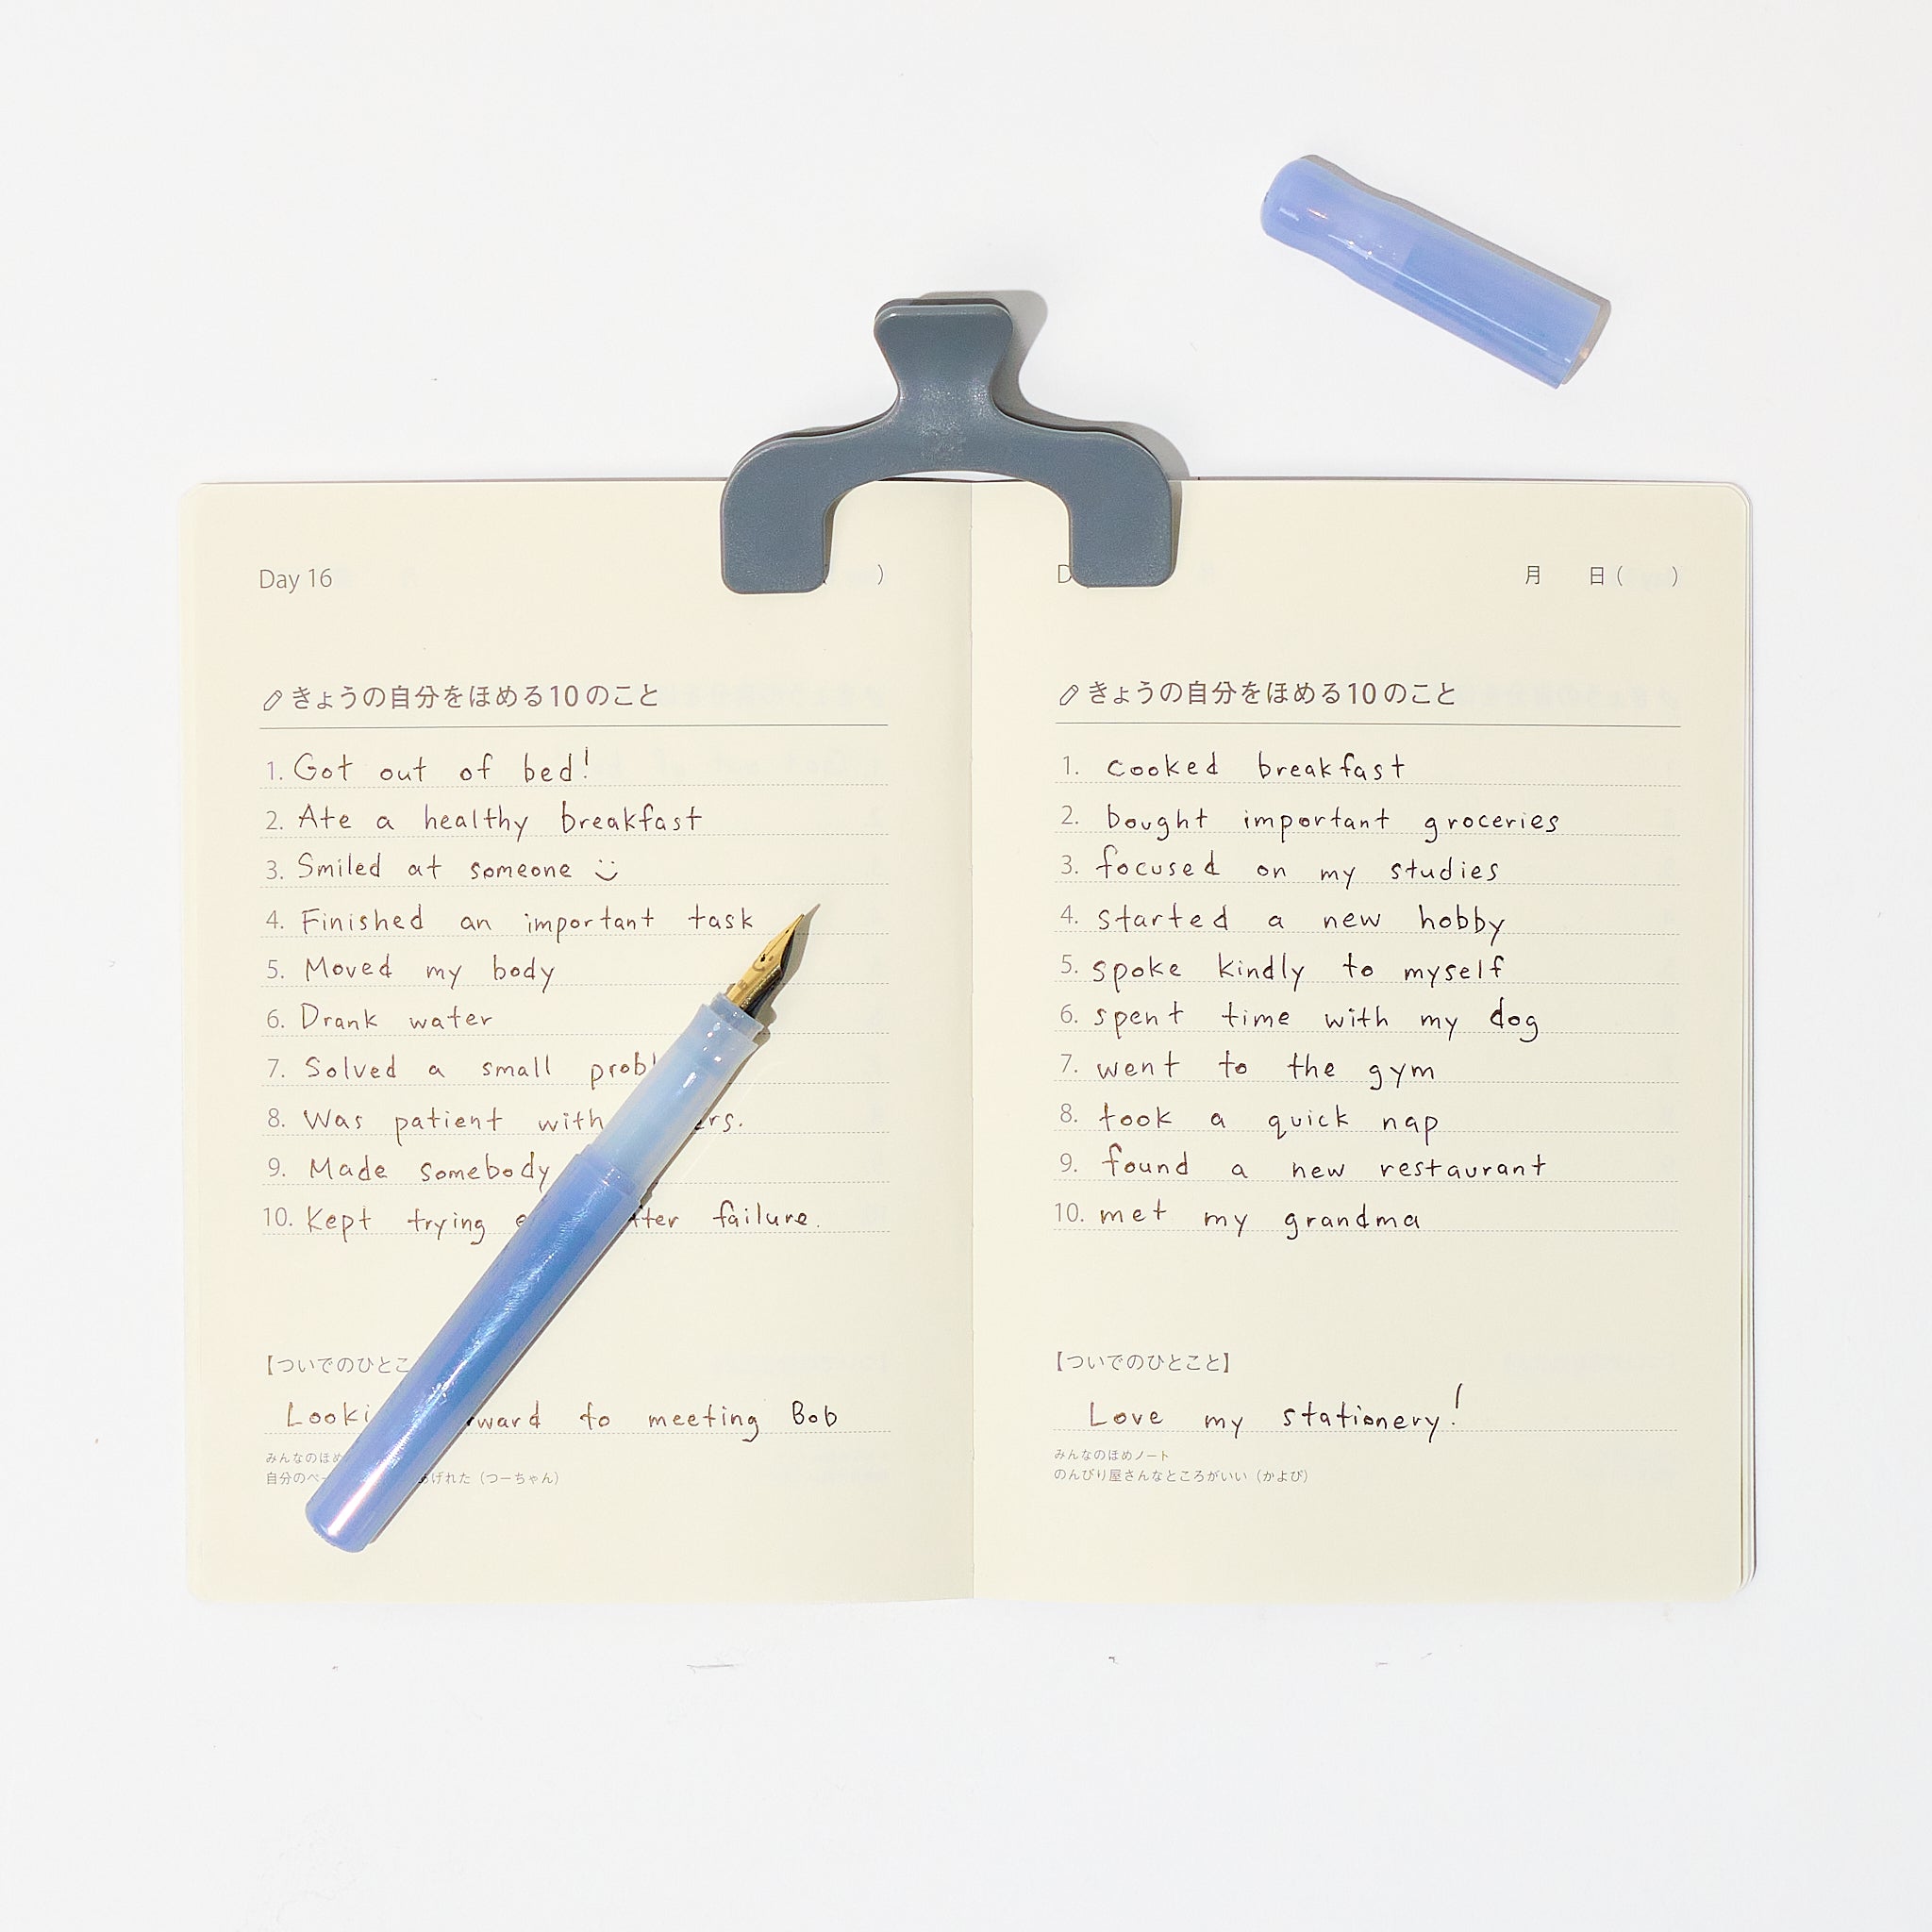 Day 16
)
きょうの自分をほめる10のこと
1. Got out of bed!
2. Ate a healthy breakfast
3. Smiled at someone
4. Finished an important task
5. Moved my body
6. Drank water
7. Solved a small
8. Was patient with
9. Made somebody
10. Kept trying failure.
【ついでのひとこ
to meeting Bob
みんなのほめ
自分のペー あげれた（つーちゃん）
月 日 ( )
きょうの自分をほめる10のこと
1. cooked breakfast
2. bought important groceries
3. focused on my studies
4. started a new hobby
5. spoke kindly to myself
6. spent time with my dog
7. went to the gym
8. took a quick nap
9. found a new restaurant
10. met my grandma
【ついでのひとこと】
Love my stationery!
みんなのほめノート
のんびり屋さんなところがいい（かよぴ）